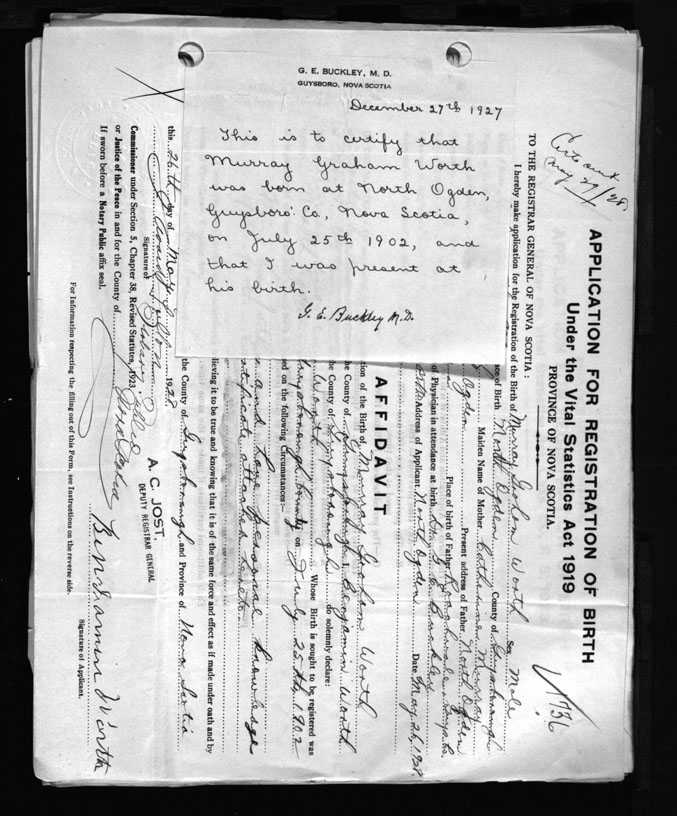 G. E. BUCKLEY, M. D.
GUYSBORO, NOVA SCOTIA
December 27th 1927
This is to certify that
Murray Graham Worth
was born at North Ogden,
Guysboro' Co., Nova Scotia,
on July 25th 1902, and
that I was present at
his birth.
G. E. Buckley M.D.
May 29/28
APPLICATION FOR REGISTRATION OF BIRTH
Under the Vital Statistics Act 1919
PROVINCE OF NOVA SCOTIA.
TO THE REGISTRAR GENERAL OF NOVA SCOTIA:
I hereby make application for the Registration of the Birth of Murray Graham Worth Sex Male
of Birth North Ogden County of Guysborough
Maiden Name of Mother Catherine Murray
Ogden Present address of Father North Ogden
Place of birth of Father
of Physician in attendance at birth Dr. G. E. Buckley
Address of Applicant North Ogden Date May 26, 1928
AFFIDAVIT
tion of the Birth of Murray Graham Worth
the County of Guysborough I, Benjamin Worth
the County of Guysborough do solemnly declare:
Worth Whose Birth is sought to be registered was
Guysborough County on July 25th, 1902
ed on the following Circumstances:-
and have personal knowledge
certificate attached hereto
lieving it to be true and knowing that it is of the same force and effect as if made under oath and by
the County of Guysborough and Province of Nova Scotia
this 26th day of May 1928
Signature of
Commissioner under Section 5, Chapter 38, Revised Statutes, 1923
or Justice of the Peace in and for the County of
If sworn before a Notary Public affix seal.
A. C. JOST,
DEPUTY REGISTRAR GENERAL
Benjamin Worth
Signature of Applicant.
For Information respecting the filling out of this Form, see Instructions on the reverse side.